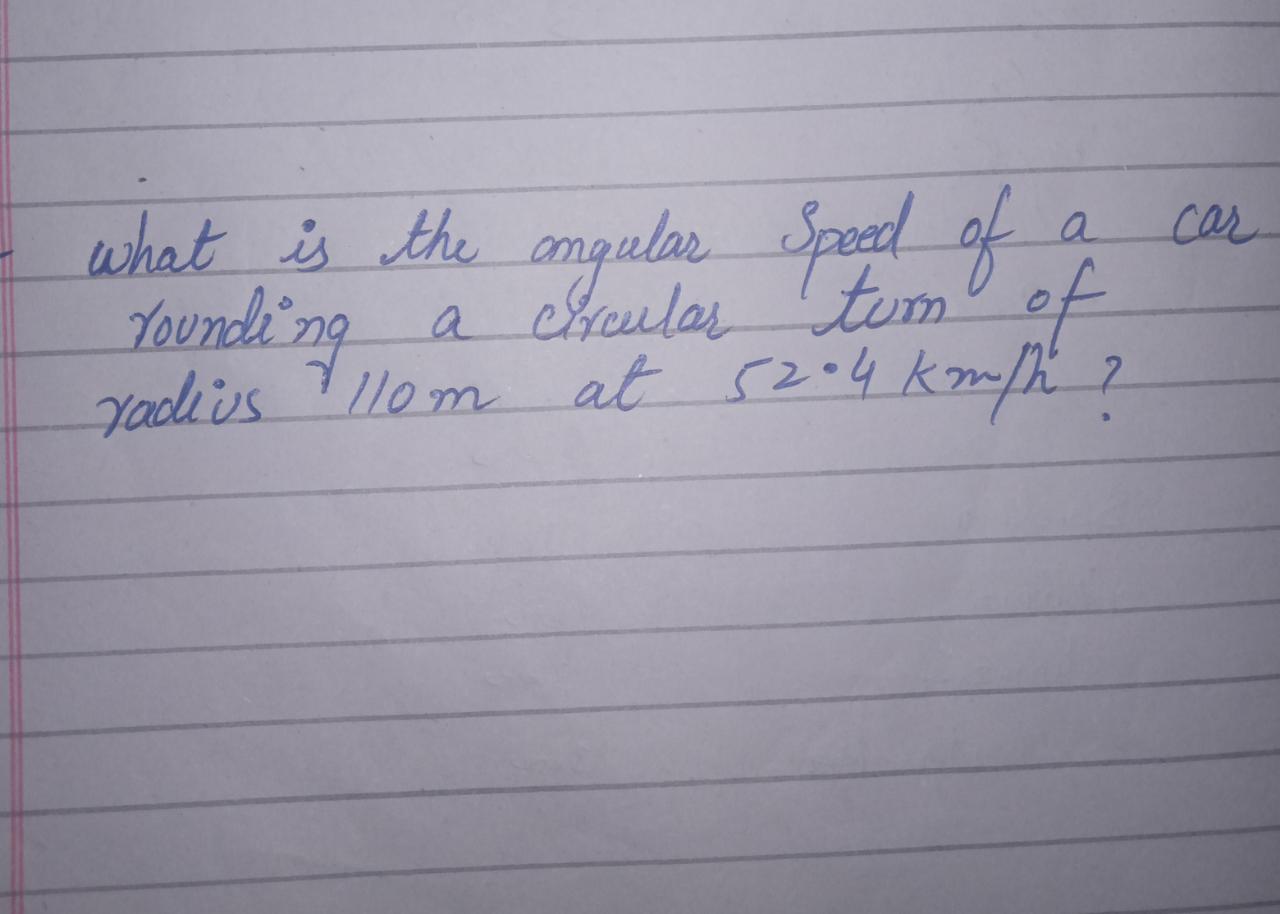 what is the angular speed of a car
rounding a circular turn of
radius 110m at 52.4 km/h ?